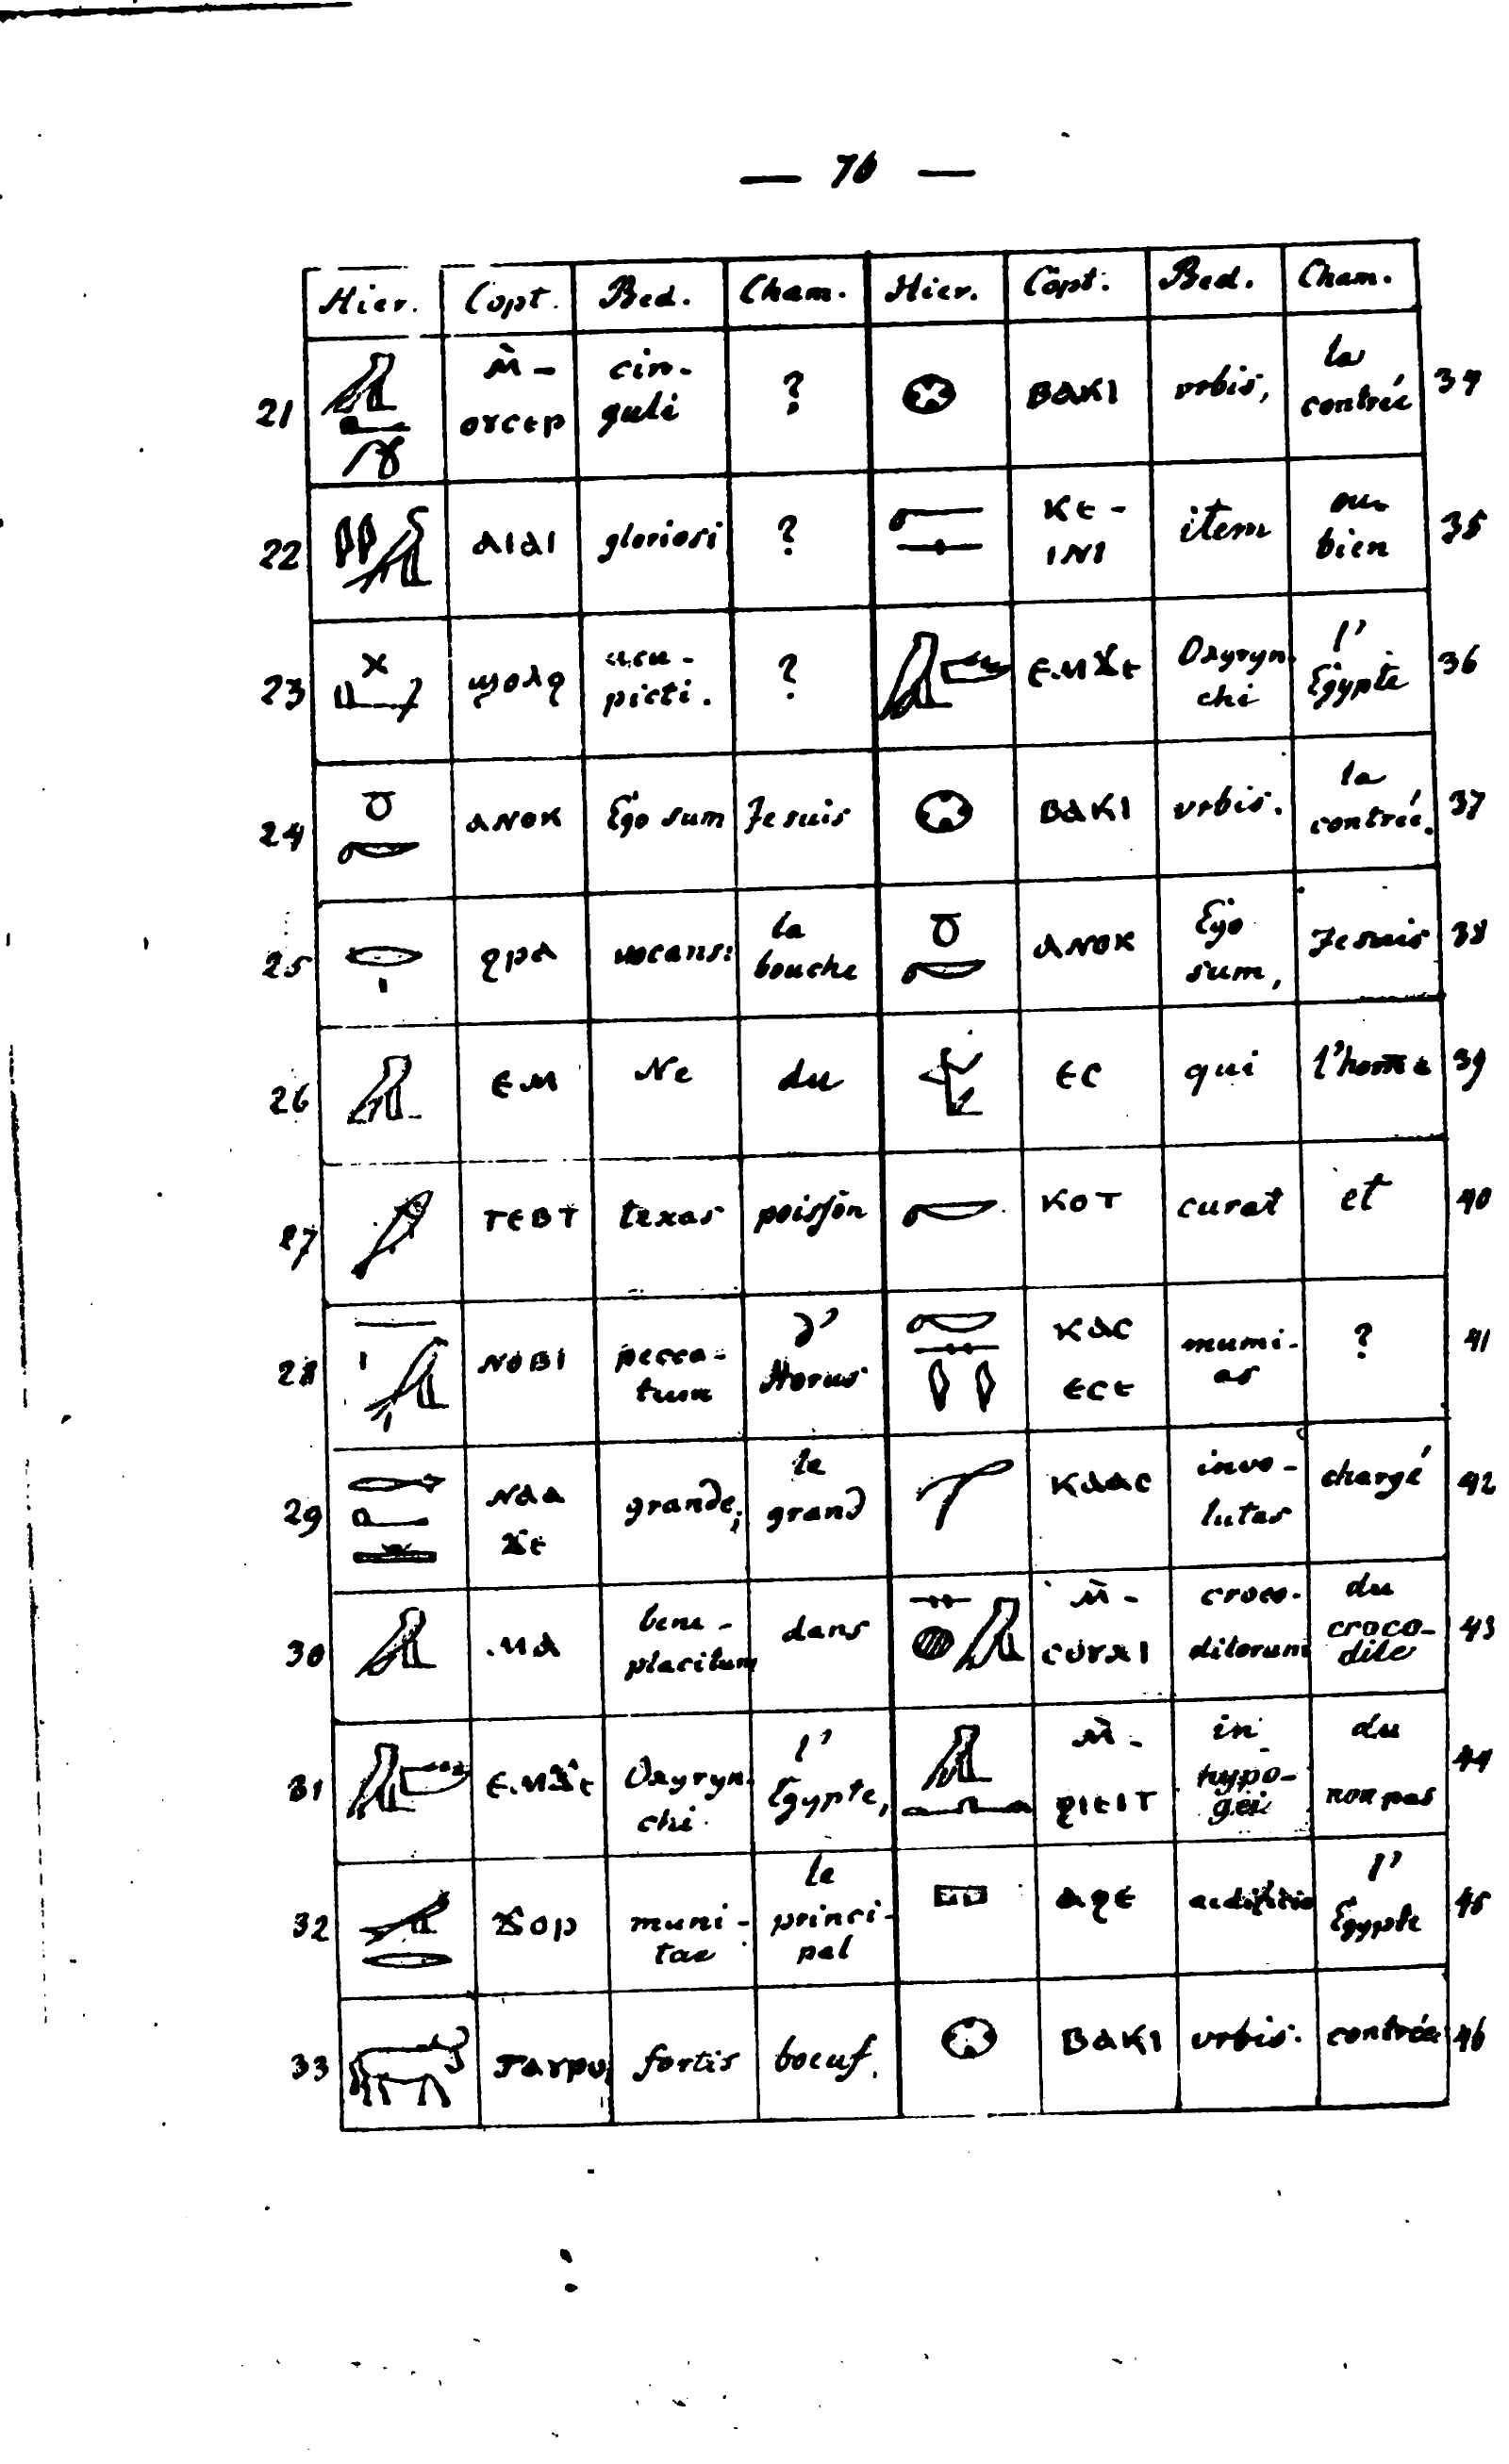 — 76 —
Hier. Copt. Bed. Cham. Hier. Copt. Bed. Cham.
21 ⲙ̀- ⲟⲩⲥⲉⲣ cin- guli ? ⲃⲁⲕⲓ urbis, la contrée 34
22 ⲁⲓⲁⲓ gloriosi ? ⲕⲉ- ⲓⲛⲓ item ou bien 35
23 ϣⲟⲗϩ acu- picti. ? ⲉⲙϫⲉ Oxyryn- chi l' Egypte 36
24 ⲁⲛⲟⲕ Ego sum Je suis ⲃⲁⲕⲓ urbis. la contrée. 37
25 ϩⲣⲁ vocans: la bouche ⲁⲛⲟⲕ Ego sum, Je suis 38
26 ⲉⲙ Ne du ⲉⲥ qui l'home 39
27 ⲧⲉⲃⲧ texas poisson ⲕⲟⲧ curat et 40
28 ⲛⲟⲃⲓ pecca- tum d' Horus ⲕⲁⲥ ⲉⲥⲉ mumi- as ? 41
29 ⲛⲁⲁ ϫⲉ grande; le grand ⲕⲁⲁⲥ invo- lutas chargé 42
30 ⲙⲁ bene- placitum dans ⲙ̀- ⲥⲟⲩⲭⲓ croco- dilorum du croco- dile 43
31 ⲉⲙϫⲉ Oxyryn- chi l' Egypte, ⲙ̀- ϩⲓⲉⲓⲧ in hypo- gei du non pas 44
32 ϫⲟⲣ muni- tae le princi- pal ⲁϩⲉ l' Egypte 45
33 ⲧⲁⲩⲣⲟ, fortis boeuf. ⲃⲁⲕⲓ urbis. contrée 46